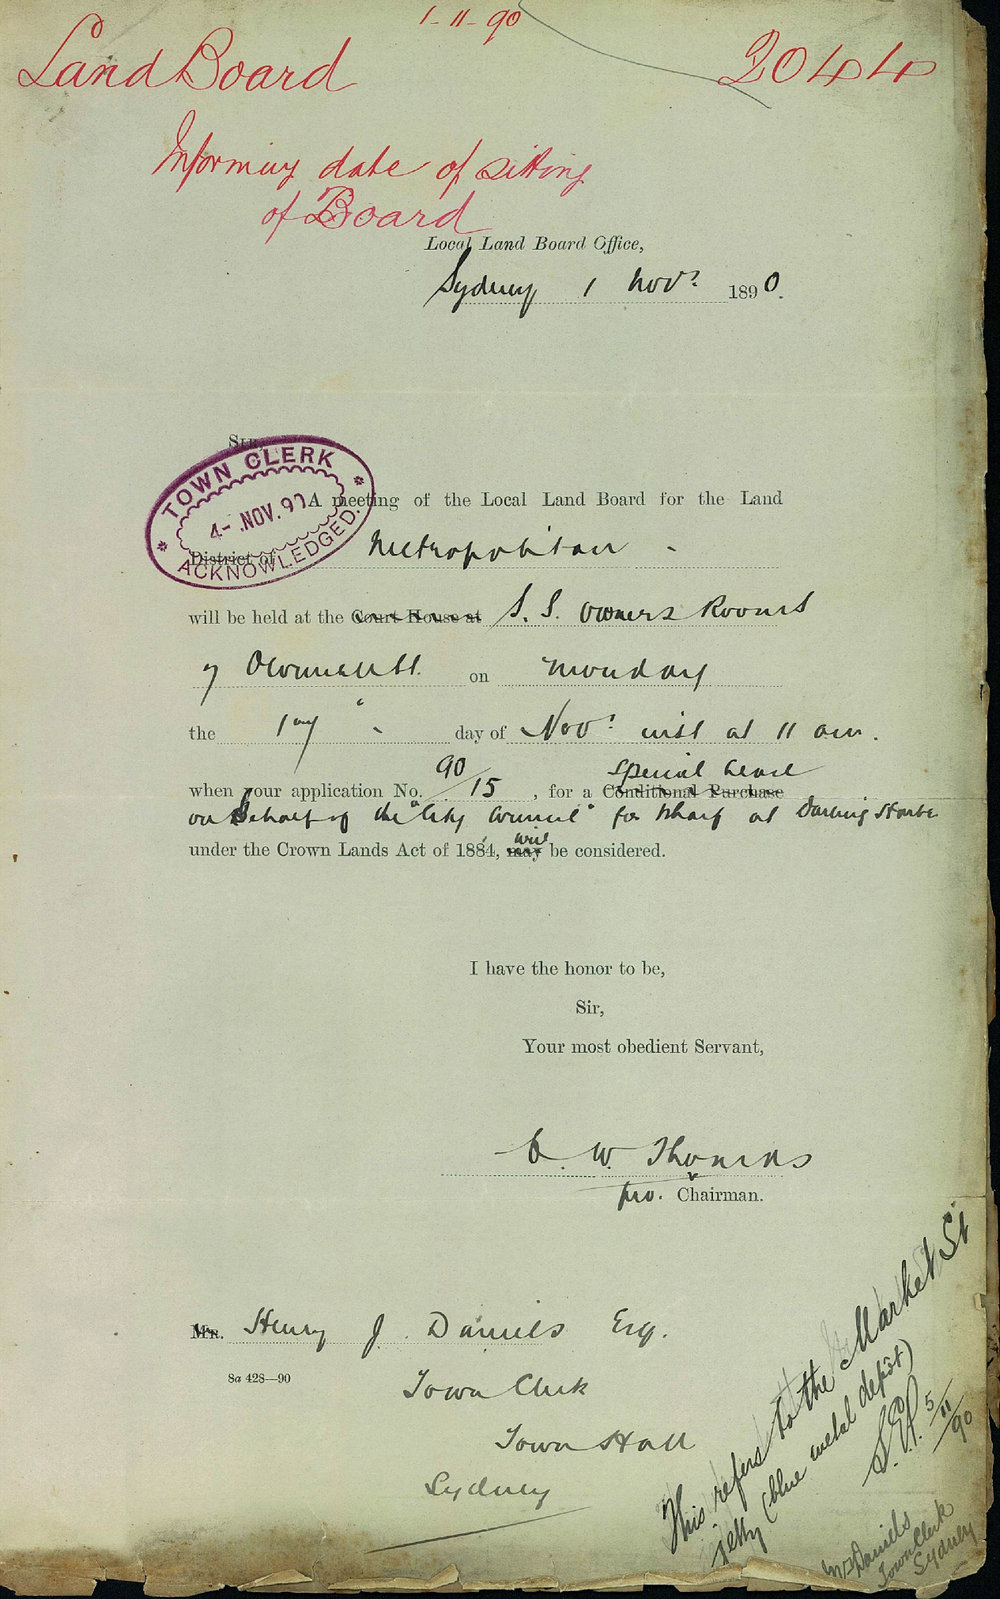 1-11-90
Land Board
2044
Informing date of sitting
of Board
Local Land Board Office,
Sydney 1 Novr. 1890.
SIR,
TOWN CLERK
4-.NOV.90
ACKNOWLEDGED.
A meeting of the Local Land Board for the Land
District of Metropolitan
will be held at the Court House at S. S. Owners Rooms
on Monday
the day of Novr. inst at 11 am.
when your application No. 90/15, for a Conditional Purchase
Special Lease
on behalf of the "City Council" for Wharf at Darling Harbr
under the Crown Lands Act of 1884, may be considered.
will
I have the honor to be,
Sir,
Your most obedient Servant,
C. W. Thomas
pro. Chairman.
Mr. Henry J. Daniels Esq.
8a 428—90
Town Clerk
Town Hall
Sydney
This refers to the Market St
jetty (blue metal depôt)
5/11/90
Mr Daniels
Town Clerk
Sydney